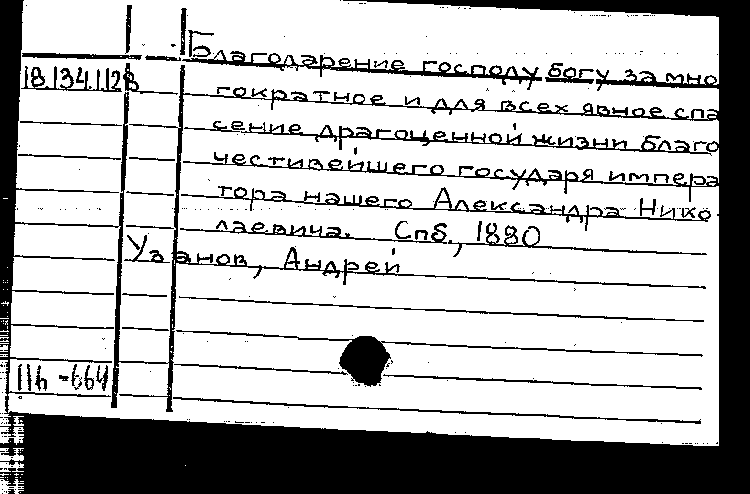 Благодарение господу богу за мно
18.134.1.128
гократное и для всех явное спа
сение драгоценной жизни благо
честивейшего государя импера
тора нашего Александра Нико-
лаевича. Спб., 1880
Узанов, Андрей
IIh -664